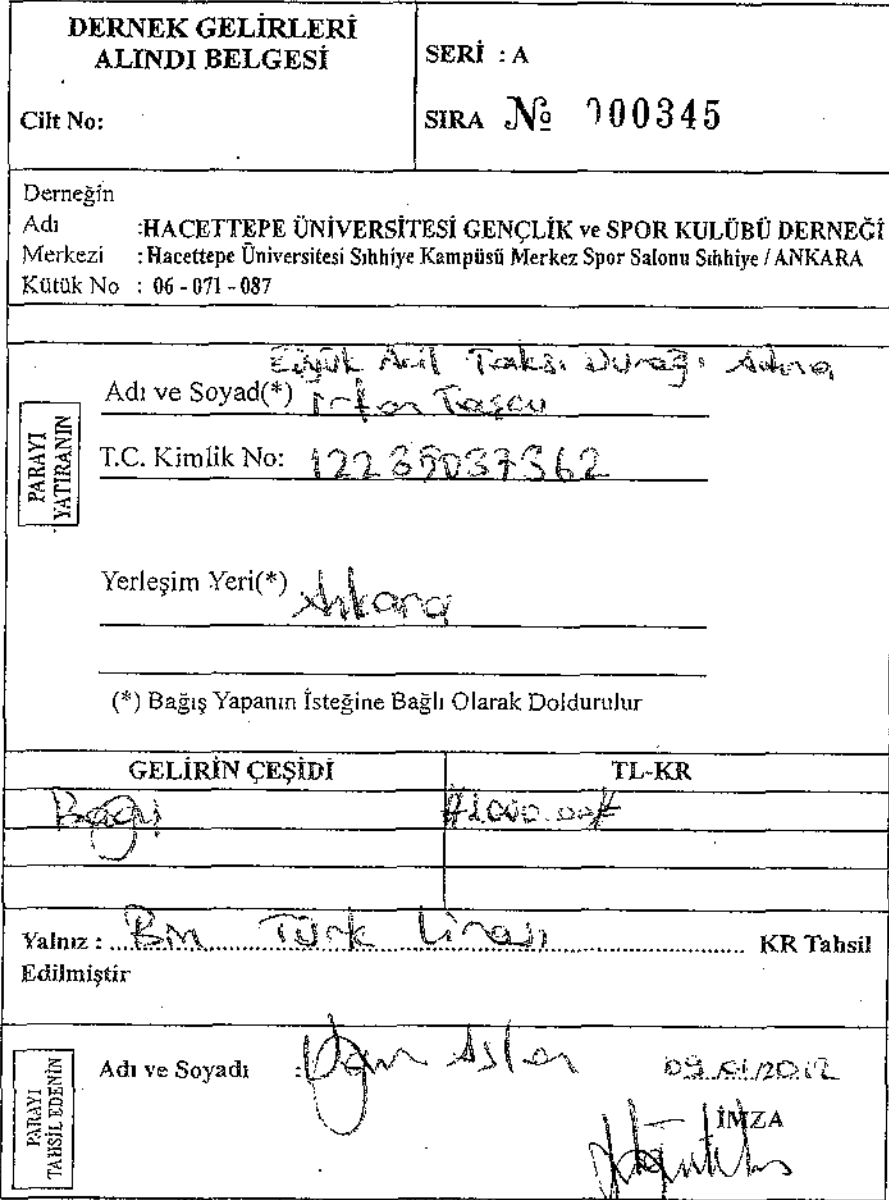 DERNEK GELİRLERİ
ALINDI BELGESİ
Cilt No:
SERİ : A
SIRA № 000345
Derneğin
Adı :HACETTEPE ÜNİVERSİTESİ GENÇLİK ve SPOR KULÜBÜ DERNEĞİ
Merkezi : Hacettepe Üniversitesi Sıhhiye Kampüsü Merkez Spor Salonu Sıhhiye / ANKARA
Kütük No : 06 - 071 - 087
PARAYI
YATIRANIN
Taksi Durağı Adına
Adı ve Soyad(*) İrfan Taşcu
T.C. Kimlik No:
Yerleşim Yeri(*) Ankara
(*) Bağış Yapanın İsteğine Bağlı Olarak Doldurulur
GELİRİN ÇEŞİDİ
TL-KR
Bağış
#1000.00#
Yalnız : Bin Türk Lirası KR Tahsil
Edilmiştir
PARAYI
TAHSİL EDENİN
Adı ve Soyadı : Aslan
09.01.2012
İMZA